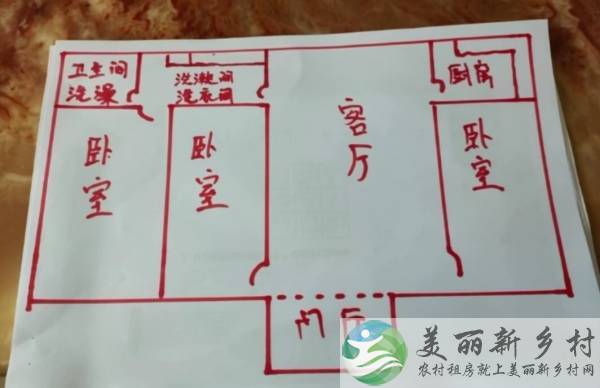 卫生间
洗澡
洗漱间
洗衣间
厨房
卧室
卧室
客厅
卧室
门厅
美丽新乡村
农村租房就上美丽新乡村网